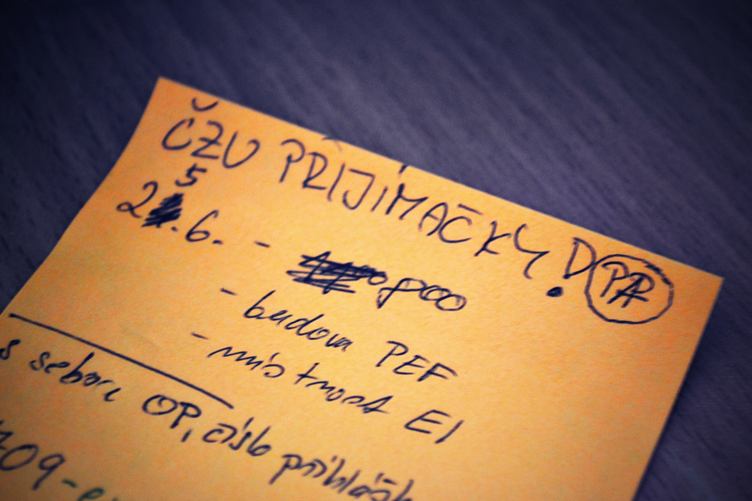 ČZU PŘIJÍMAČKY! PÁ
25.6. -
- budova PEF
- místnost E1
s sebou OP, číslo přihlášk
709-